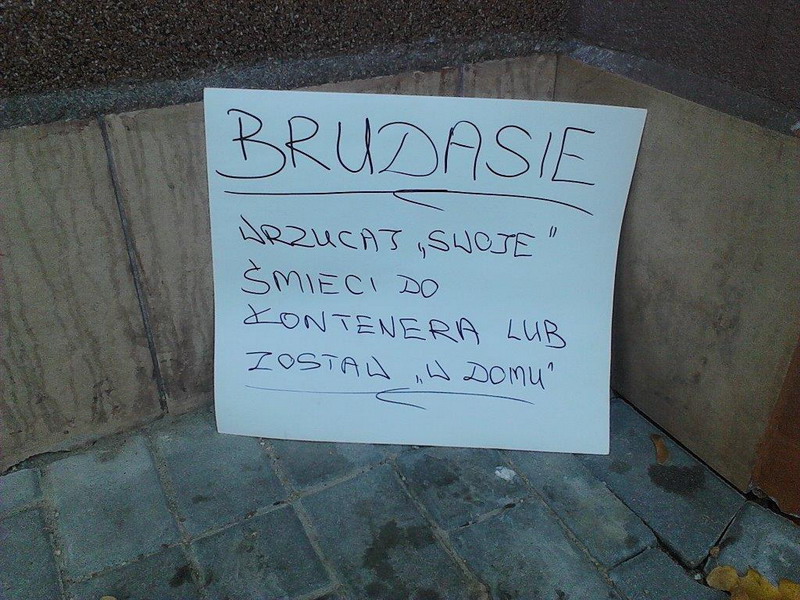 BRUDASIE
WRZUCAJ „SWOJE"
ŚMIECI DO
KONTENERA LUB
ZOSTAW „W DOMU"